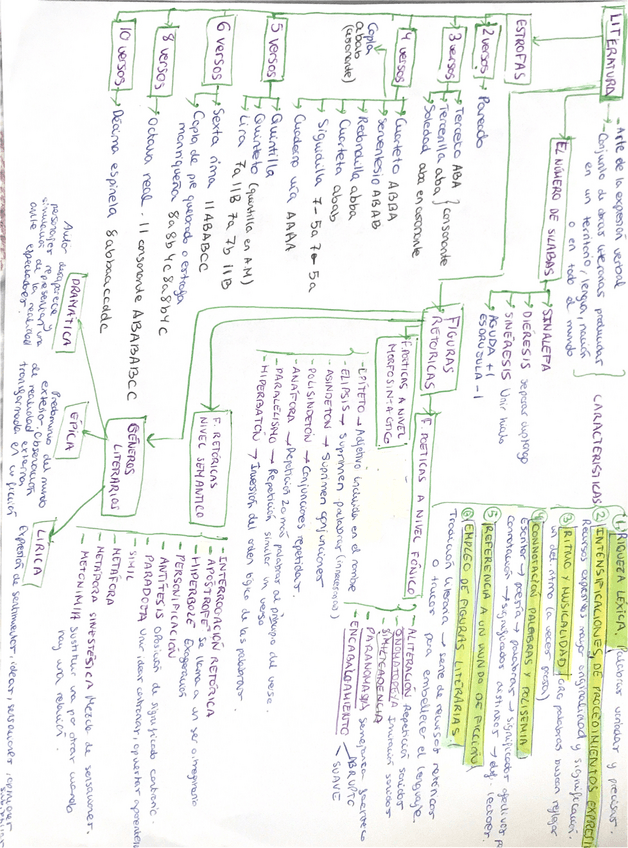 LITERATURA
- Arte de la expresión verbal
- Conjunto de obras literarias producidas
en un territorio, lengua, nación
o en todo el mundo
CARACTERÍSTICAS
1. RIQUEZA LÉXICA. Palabras variadas y precisas.
2 INTENSIFICACIÓN DE PROCEDIMIENTOS EXPRESI
Recursos expresivos mayor originalidad y significación.
3 RITMO Y MUSICALIDAD palabras buscan reflejar
un det. ritmo (a veces
4 CONNOTACIÓN PALABRAS Y POLISEMIA
Escritor → poesía → palabras → significados afectivos
Connotación → significados distintos → dif. lectores.
5 REFERENCIA A UN MUNDO DE FICCIÓN
6 EMPLEO DE FIGURAS LITERARIAS
Tradición literaria → serie de recursos retóricos
o trucos para embellecer el lenguaje.
EL NÚMERO DE SÍLABAS
SINALEFA
DIÉRESIS separar diptongo
SINÉRESIS Unir hiato
AGUDA +1
ESDRÚJULA -1
ESTROFAS
2 versos → Pareado
3 versos
Terceto ABA
Tercerilla aba } consonante
Soledad aba en asonante
4 versos
Copla
abab
(asonante)
Cuarteto ABBA
Serventesio ABAB
Redondilla abba
Cuarteta abab
Siguidilla 7- 5a 7- 5a
Cuaderno vía AAAA
5 versos
Quintilla
Quinteto (quintilla en A.M)
Lira 7a 11B 7a 7b 11B
6 versos
Sexta rima 11 ABABCC
Copla de pie quebrado o estrofa
manriqueña 8a 8b 4c 8a 8b 4c
8 versos → Octava real. 11 consonante ABABABCC
10 versos → Décima espinela 8abbaaccddc
FIGURAS
RETÓRICAS
F. POÉTICAS A NIVEL FÓNICO
- ALITERACIÓN Repetición sonidos
- ONOMATOPEYA Imitación sonidos
- SIMILICADENCIA
- PARANOMASIA semejanza fonética
- ENCABALGAMIENTO < ABRUPTO
SUAVE
F. POÉTICAS A NIVEL
MORFOSINTÁCTICO
- EPÍTETO → Adjetivo incluido en el nombre
- ELIPSIS → Suprimen palabras (innecesarias)
- ASÍNDETON → Suprimen conjunciones
- POLISÍNDETON → Conjunciones repetidas.
- ANÁFORA → Repetición 2 o más palabras al principio del verso.
- PARALELISMO → Repetición similar un verso
- HIPERBATON → Inversión del orden lógico de las palabras.
F. RETÓRICAS
NIVEL SEMÁNTICO
- INTERROGACIÓN RETÓRICA
- APÓSTROFE Se llama a un ser o imaginario
- HIPÉRBOLE Exageramos
- PERSONIFICACIÓN
- ANTÍTESIS Oposición de significado contrario.
- PARADOJA Unir ideas contrarias, opuestas
- SÍMIL
- METÁFORA
- METÁFORA SINESTÉSICA Mezcla de sensaciones.
- METONIMIA Sustituir una por otras cuando
hay una relación.
GÉNEROS
LITERARIOS
DRAMÁTICA
Autor desaparece y
personajes representan una
simulación de la realidad
ante espectadores.
ÉPICA
Predominio del mundo
exterior. Observación
de realidad externa
transformada en un ficción
LÍRICA
Expresión de sentimientos, ideas, sensaciones, opiniones